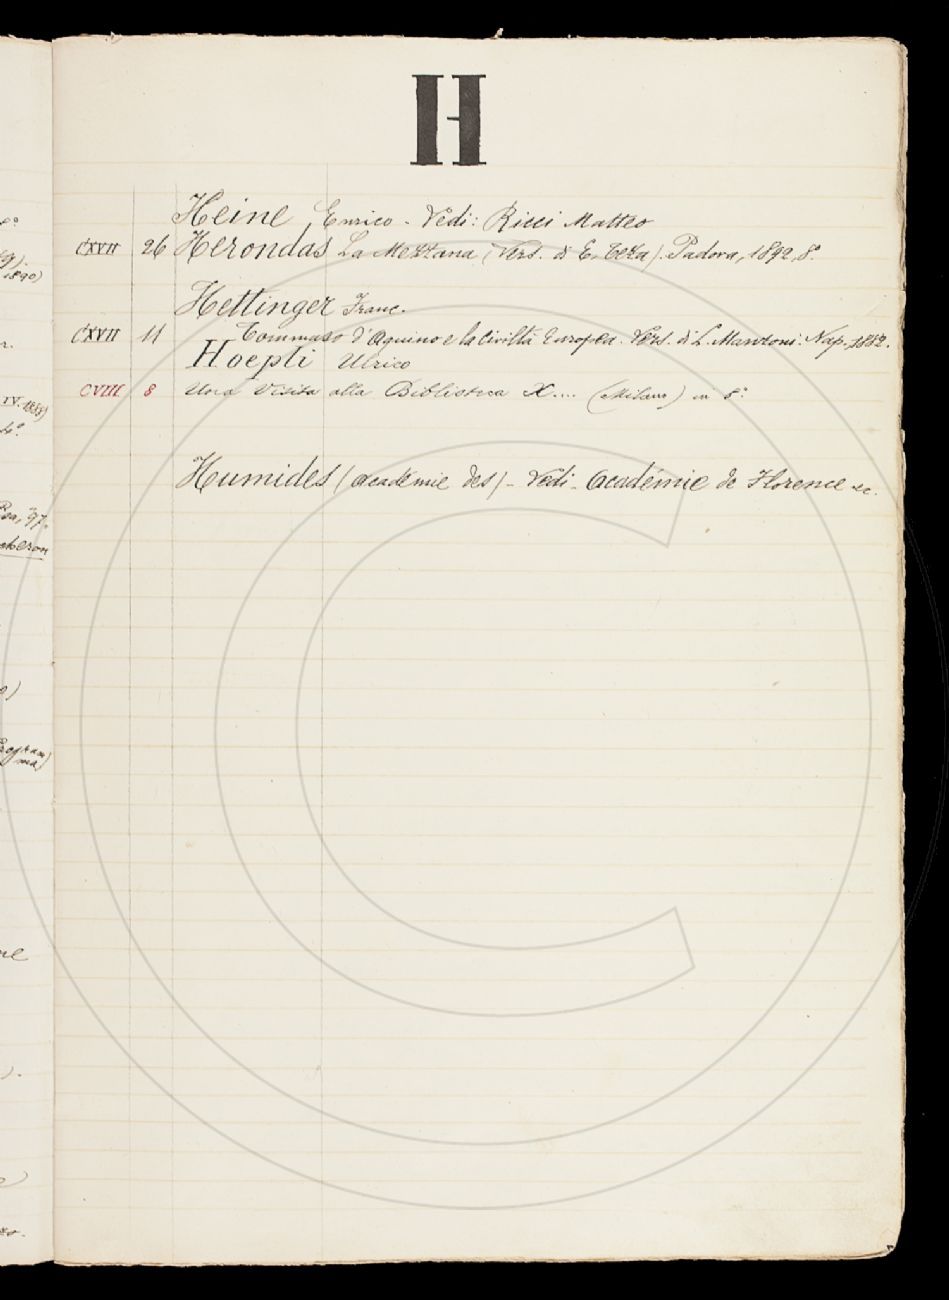 H
Heine Enrico - Vedi: Ricci Matteo
CXVII 26 Herondas La Mezzana (Vers. di E. Teza). Padova, 1892, 8°.
Hettinger Franc.
CXVII 11 Tommaso d'Aquino e la civiltà Europea. Vers. di L. Manzoni. Nap. 1882.
Hoepli Ulrico
CVIII 8 Una Visita alla Biblioteca X.... (Milano) in 8°
Humides (Académie des) - Vedi - Académie de Florence ec.